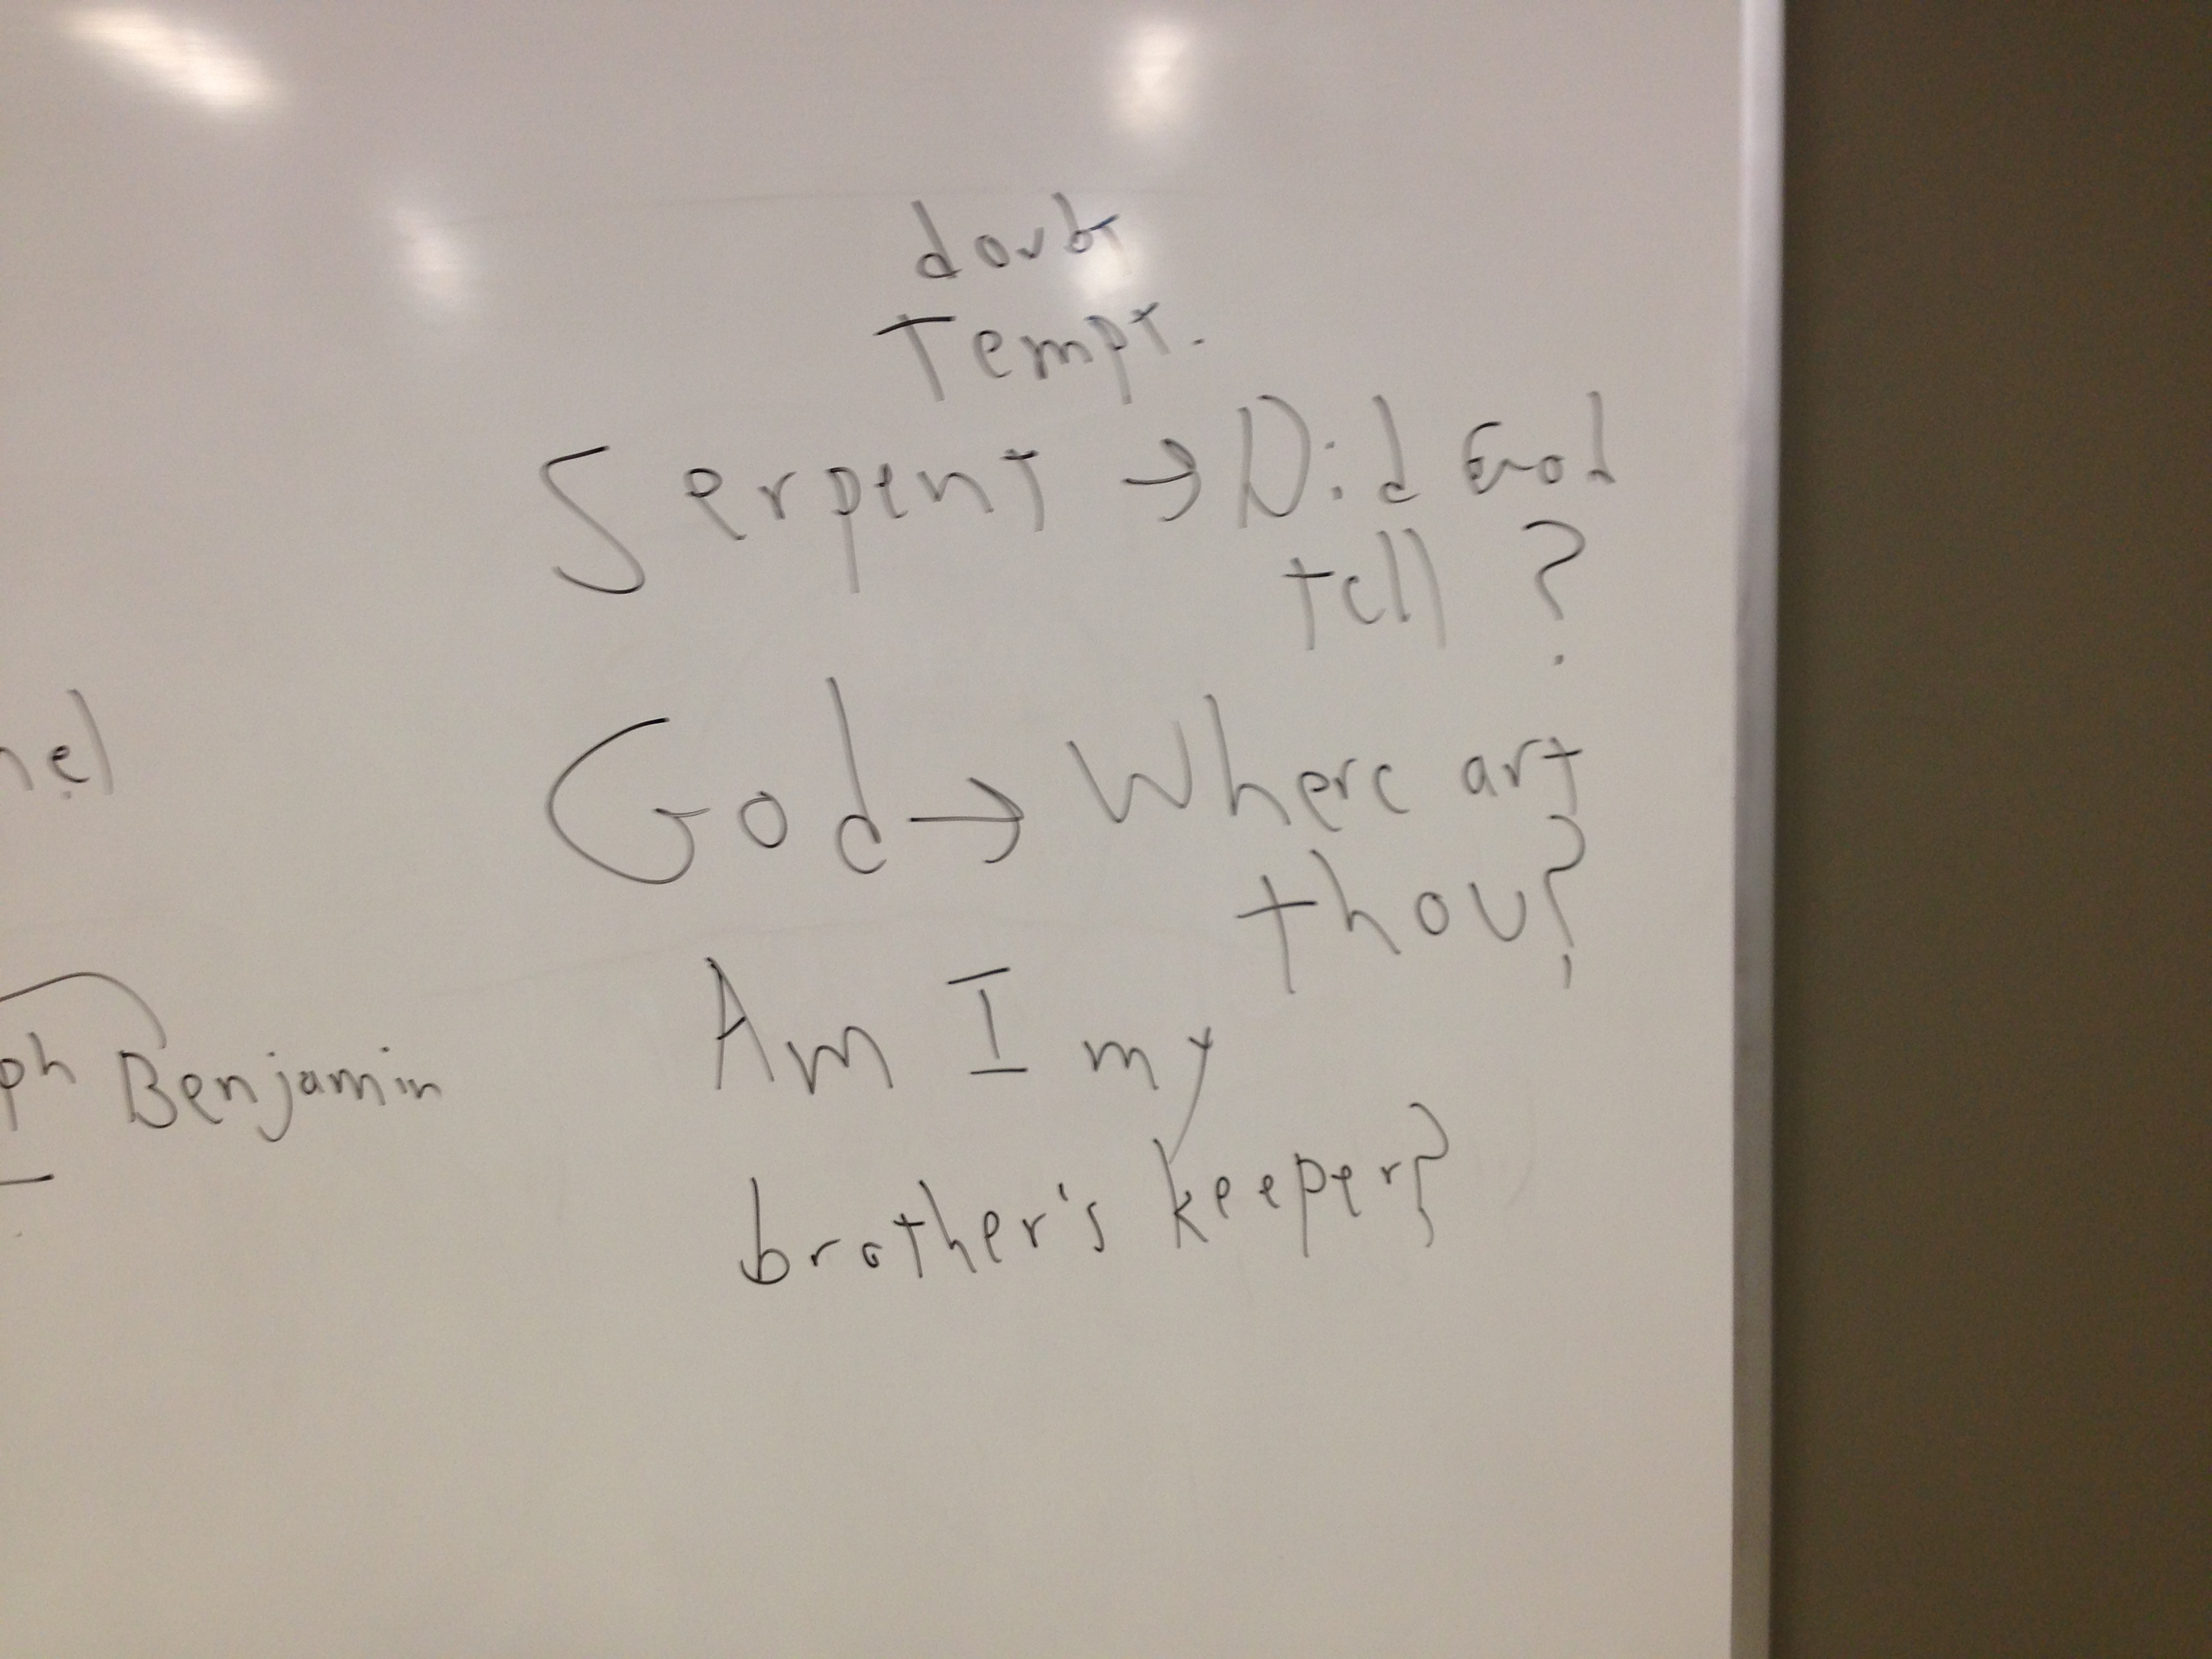 doubt
Tempt.
Serpent → Did God
tell ?
God → Where art
thou?
Am I my
brother's keeper?
Benjamin